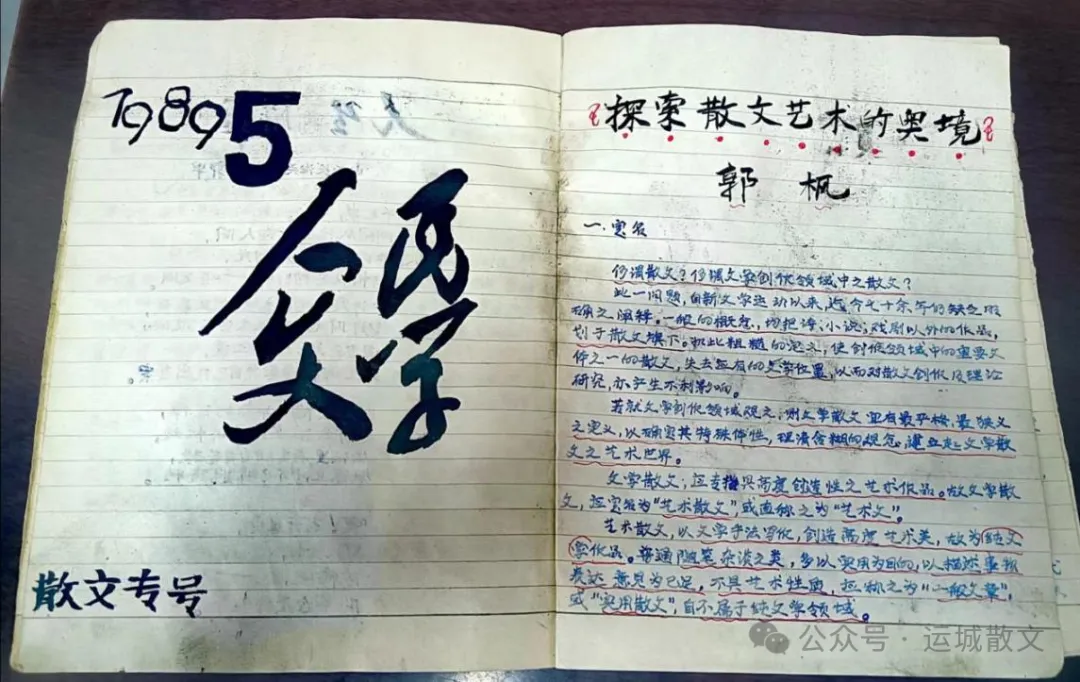 1989
5
人民
文学
散文专号
探索散文艺术的奥境
郭枫
一.定名
何谓散文?何谓文学创作领域中之散文?
此一问题,自新文学运动以来,迄今七十余年仍缺乏明
确之阐释。一般的概念,均把诗、小说、戏剧以外的作品,
划于散文旗下。如此粗糙的定义,使创作领域中的重要文
体之一的散文,失去应有的文学位置,从而对散文创作及理论
研究,亦产生不利影响。
若就文学创作领域观之,则文学散文宜有最严格、最狭义
之定义,以确定其特殊体性,理清含糊的观念,建立起文学散
文之艺术世界。
文学散文,应专指具高度创造性之艺术作品。故文学散
文,应定名为“艺术散文”,或直称之为“艺术文”。
艺术散文,以文学手法写作,创造高度艺术美,故为纯文
学作品。普通随笔杂谈之类,多以实用为目的,以描述事报
表达意见为已足,不具艺术性质,应称之为“一般文章”,
或“实用散文”自不属于纯文学领域。
公众号·运城散文